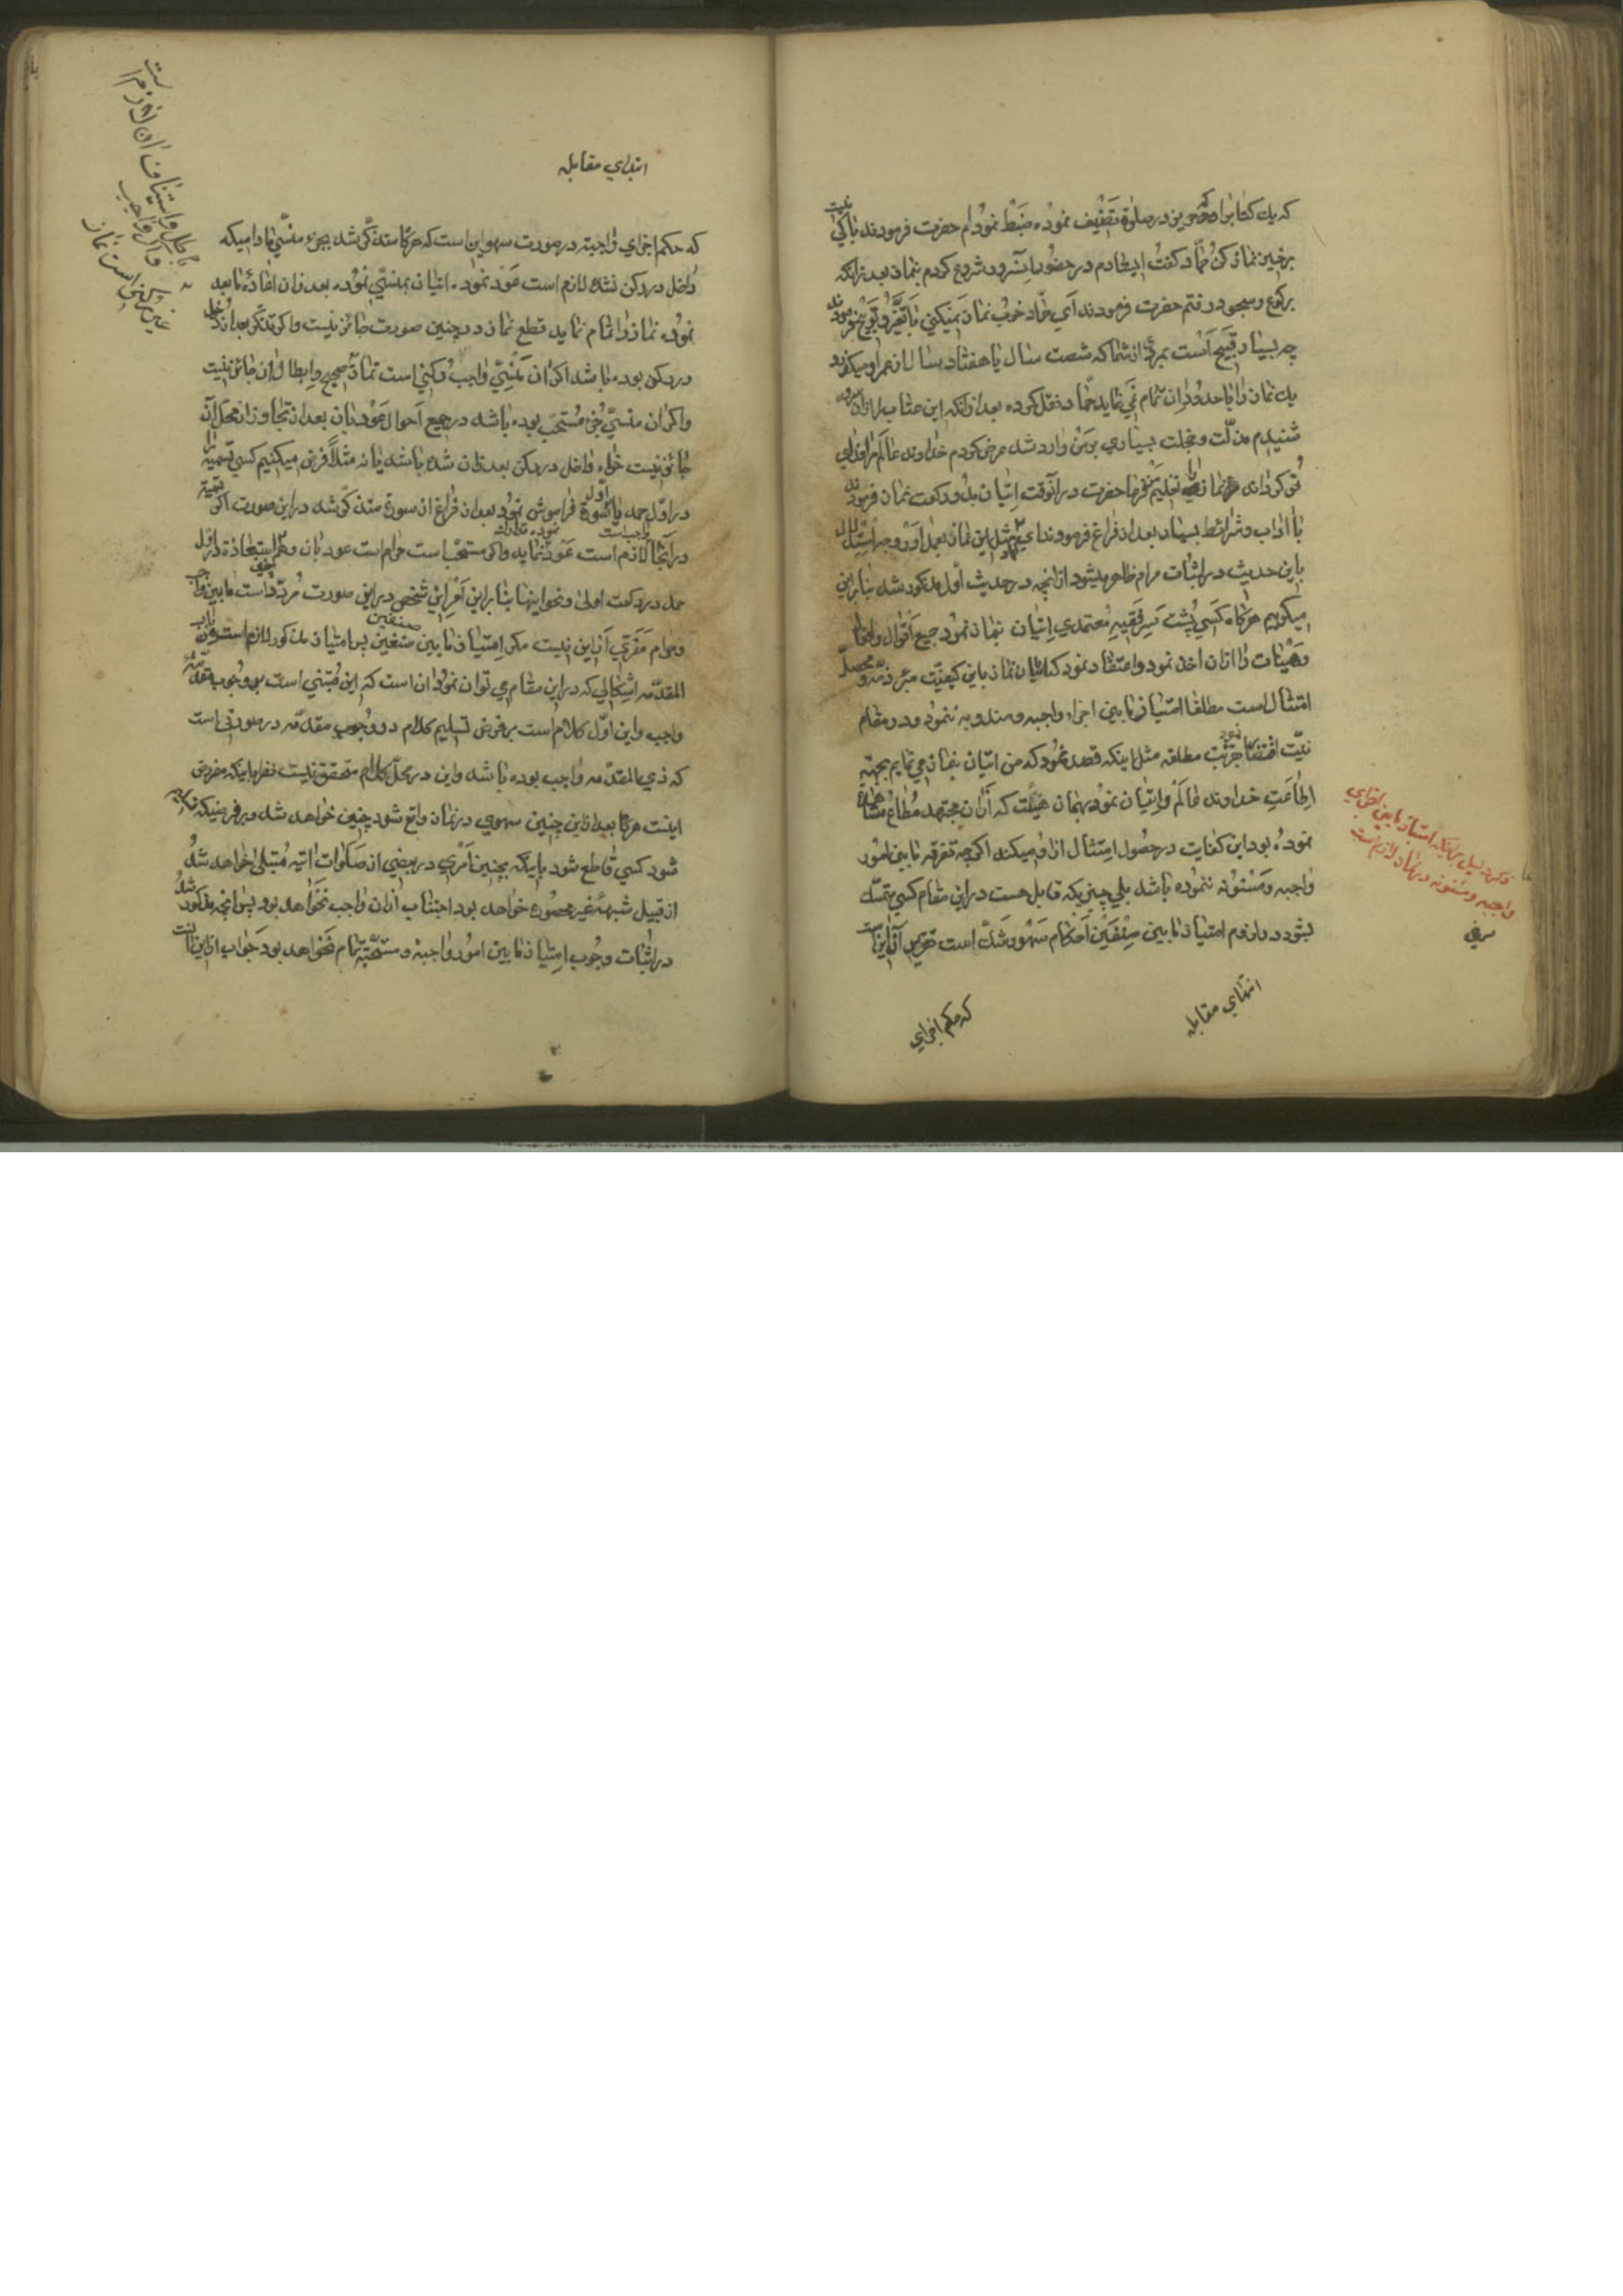 که یك کتاب را که حریز در صلوة تصنیف نموده ضبط نموده‌ام حضرت فرمودند باکی نیست
برخیز نماز کن حمّاد گفت ایستادم در حضور آنسرور شروع کردم بنماز بعد از انکه
برکوع و سجود رفتم حضرت فرمودند اي حمّاد خوب نماز نمیکني با تغیّر و توبیخ فرمودند
چه بسیار قبیح است بمردي از شما که شصت سال یا هفتاد سال از عمر او میگذرد
یك نماز را با حدود ان تمام نمي نماید حمّاد نقل کرده بعد از انکه این عتاب را از ان سرور
شنیدم مذلّت و خجلت بسیاري بر من وارد شد عرض کردم خداوند عالم مرا فداي
تو گرداند نماز را تعلیم من فرما حضرت در انوقت اتیان بدو رکعت نماز فرمودند
با اداب و شرائط بسیار بعد از فراغ فرمودند اي حمّاد مثل این نماز بعمل اور وجه استدلال
باین حدیث در اثبات مرام ظاهر میشود از انچه در حدیث اول مذکور شد بنابراین
میگوییم هرگاه کسي پشت سر فقیه معتمدي اتیان بنماز نمود جمیع اقوال و افعال
و هیئات را از ان اخذ نمود و اعتقاد نمود که اتیان نماز باین کیفیّت مبرء ذمّه و محصل
امتثال است مطلقا امتیاز مابین اجزاء واجبه و مندوبه ننمود و در مقام
نیّت اقتصار نمود بقربت مطلقه مثل اینکه قصد نمود که من اتیان بنماز مي نمایم بجهة
اطاعت خداوند عالم و اتیان نمود بهمان هیئت که از ان مجتهد مطاع مشاهده
نموده بود این کفایت در حصول امتثال از او میکند اگرچه تفرقه مابین امور
واجبه و مسنونه ننموده باشد بلي چیزیکه قابل هست در این مقام کسي متمسّك
بشود در لزوم امتیاز مابین صنفین احکام سهو و شك است تقریب ان اینست
انتهاي مقابله
که حکم اجزاي
ذکر دلیل برآنکه امتیاز مابین اجزاي
واجبه و مسنونه در نماز لازم است
ابتداي مقابله
که حکم اجزاي واجبه در صورت سهو این است که هرگاه متذکّر شد بجزء منسيّ مادامیکه
داخل در رکن نشده لازم است عود نموده اتیان بمنسيّ نموده بعد از ان اعادهٔ مابعد
نموده نماز را اتمام نماید قطع نماز در چنین صورت جائز نیست و اگر تذکّر بعد از دخول
در رکن بوده باشد اگر ان منسيّ واجب رکني است نماز صحیح و ابطال ان جائز نیست
و اگر ان منسيّ جزء مستحبّ بوده باشد در جمیع احوال عود بان بعد از تجاوز از محل ان
جائز نیست خواه داخل در رکن بعد از ان شده باشد یا نه مثلاً فرض میکنیم کسي تسمیه را
در اوّل حمد یا سوره فراموش نمود بعد از فراغ از سوره متذکّر شد در این صورت اگر تسمیه
در انجا واجب است لازم است عود نموده تدارك نماید و اگر مستحبّ است حرام است عود بان و همچنین استعاذه در اوّل
حمل در رکعت اولی و نحو اینها بنابراین امر این شخص در این صورت مردّد است مابین واجب
و حرام مفرّي از این نیست مگر امتیاز مابین صنفین پس امتیاز مذکور لازم است من باب
المقدّمه اشکالي که در این مقام مي توان نمود ان است که این مبتني است بر وجوب مقدّمهٔ
واجب و این اوّل کلام است بر فرض تسلیم کلام در وجوب مقدّمه در صورتي است
که ذي المقدّمه واجب بوده باشد و این در محلّ کلام متحقق نیست نظر باینکه مفروض
اینست هرگاه بعد از این چنین سهوي در نماز واقع شود چنین خواهد شد و بر فرضیکه
شود کسي قاطع شود باینکه بچنین امري در بعضي از صلوات اتیه مبتلی خواهد شد
از قبیل شبههٔ غیر محصوره خواهد بود اجتناب از ان واجب نخواهد بود پس انچه مذکور شد
در اثبات وجوب امتیاز مابین امور واجبه و مستحبّه تمام نخواهد بود جواب از این اینست